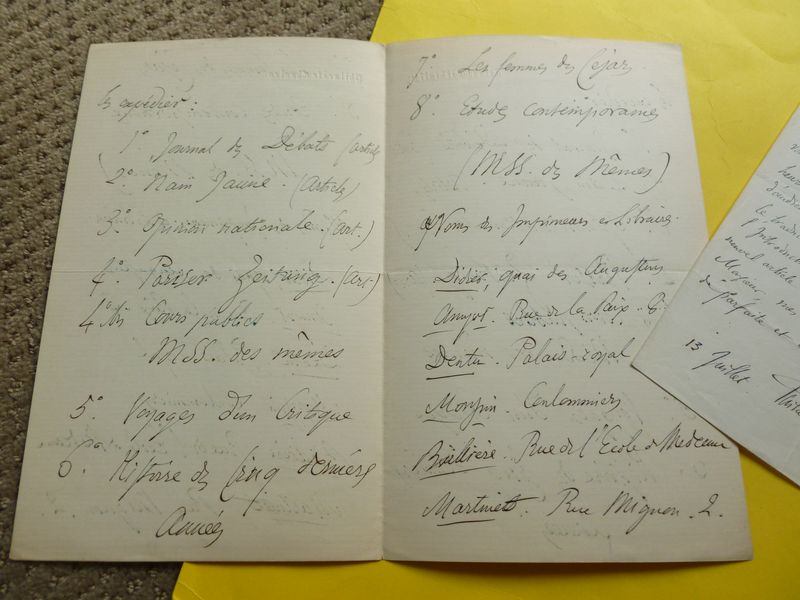 à expédier :
1° Journal des Débats (articles
2° Nain Jaune. (Articles)
3° Opinion nationale. (art.)
4° Pariser Zeitung. (Art.)
4° bis Cours publics
MSS. des mêmes
5° Voyages d'un Critique
6° Histoire des Cinq dernières
Années
7° Les femmes des Césars.
8° Etudes contemporaines
(MSS. des Mêmes)
Noms des Imprimeurs et Libraires.
Didier, quai des Augustins
Amyot. Rue de la Paix. 8.
Dentu. Palais-royal
Morizin.
Baillière. Rue de l'Ecole de Medecine
Martinet. Rue Mignon. 2.
nouvel article
parfaite et
13 Juillet.